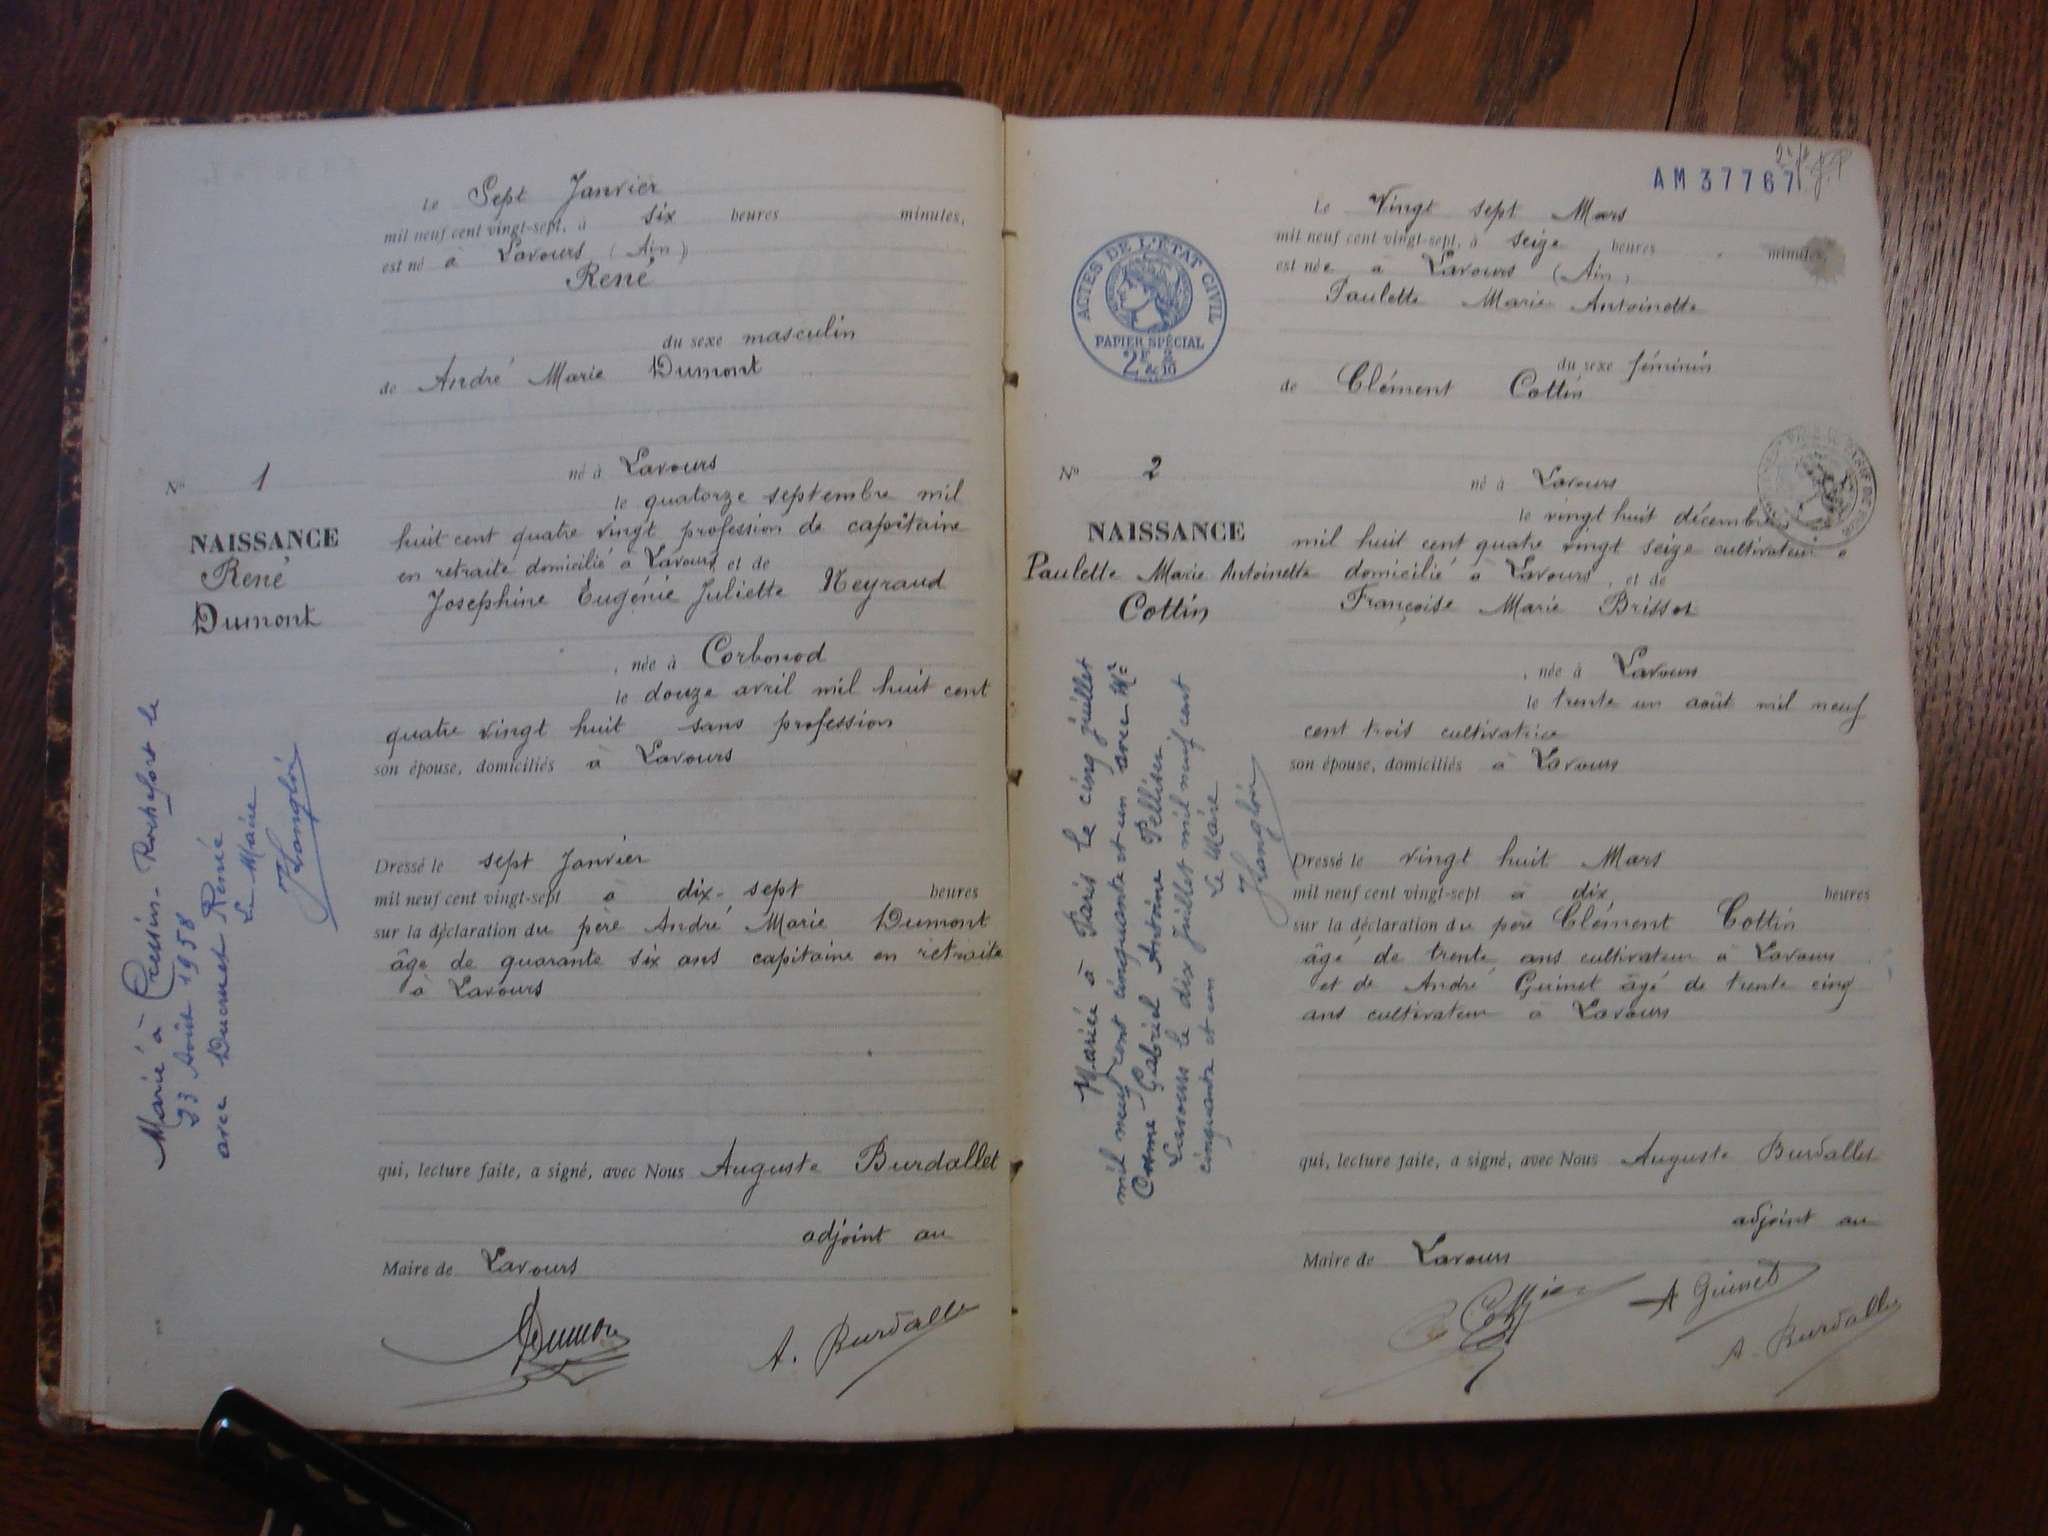 Le Sept Janvier
mil neuf cent vingt-sept, à six heures minutes,
est né à Lavours (Ain)
René
du sexe masculin
de André Marie Dumont
né à Lavours
N° 1
le quatorze septembre mil
NAISSANCE
huit cent quatre vingt profession de capitaine
René
en retraite domicilié à Lavours, et de
Dumont
Joséphine Eugénie Juliette Neyraud
, née à Corbonod
le douze avril mil huit cent
quatre vingt huit sans profession
son épouse, domiciliés à Lavours
Dressé le sept Janvier
mil neuf cent vingt-sept à dix-sept heures
sur la déclaration du père André Marie Dumont
âgé de quarante six ans capitaine en retraite
à Lavours
qui, lecture faite, a signé, avec Nous Auguste Burdallet
adjoint au
Maire de Lavours
Dumont
A. Burdallet
Marié à Cressin-Rochefort le
23 Août 1958
avec Ducruet Renée
Le Maire
AM 37767
Le Vingt sept Mars
mil neuf cent vingt-sept, à seize heures minutes,
est née à Lavours (Ain)
Paulette Marie Antoinette
ACTES DE L'ÉTAT CIVIL
PAPIER SPÉCIAL
2F & 2/10
du sexe féminin
de Clément Cottin
né à Lavours
N° 2
le vingt huit décembre
NAISSANCE
mil huit cent quatre vingt seize cultivateur
Paulette Marie Antoinette
domicilié à Lavours, et de
Cottin
Françoise Marie Brissot
, née à Lavours
le trente un août mil neuf
cent trois cultivatrice
son épouse, domiciliés à Lavours
Dressé le vingt huit Mars
mil neuf cent vingt-sept à dix heures
sur la déclaration du père Clément Cottin
âgé de trente ans cultivateur à Lavours
et de André Guinet âgé de trente cinq
ans cultivateur à Lavours
qui, lecture faite, a signé, avec Nous Auguste Burdallet
adjoint au
Maire de Lavours
A Guinet
A. Burdallet
Mariée à Paris le cinq juillet
mil neuf cent cinquante et un avec Mr
Cosme Gabriel Antoine Pellissier
Lavours le dix Juillet mil neuf cent
cinquante et un Le Maire